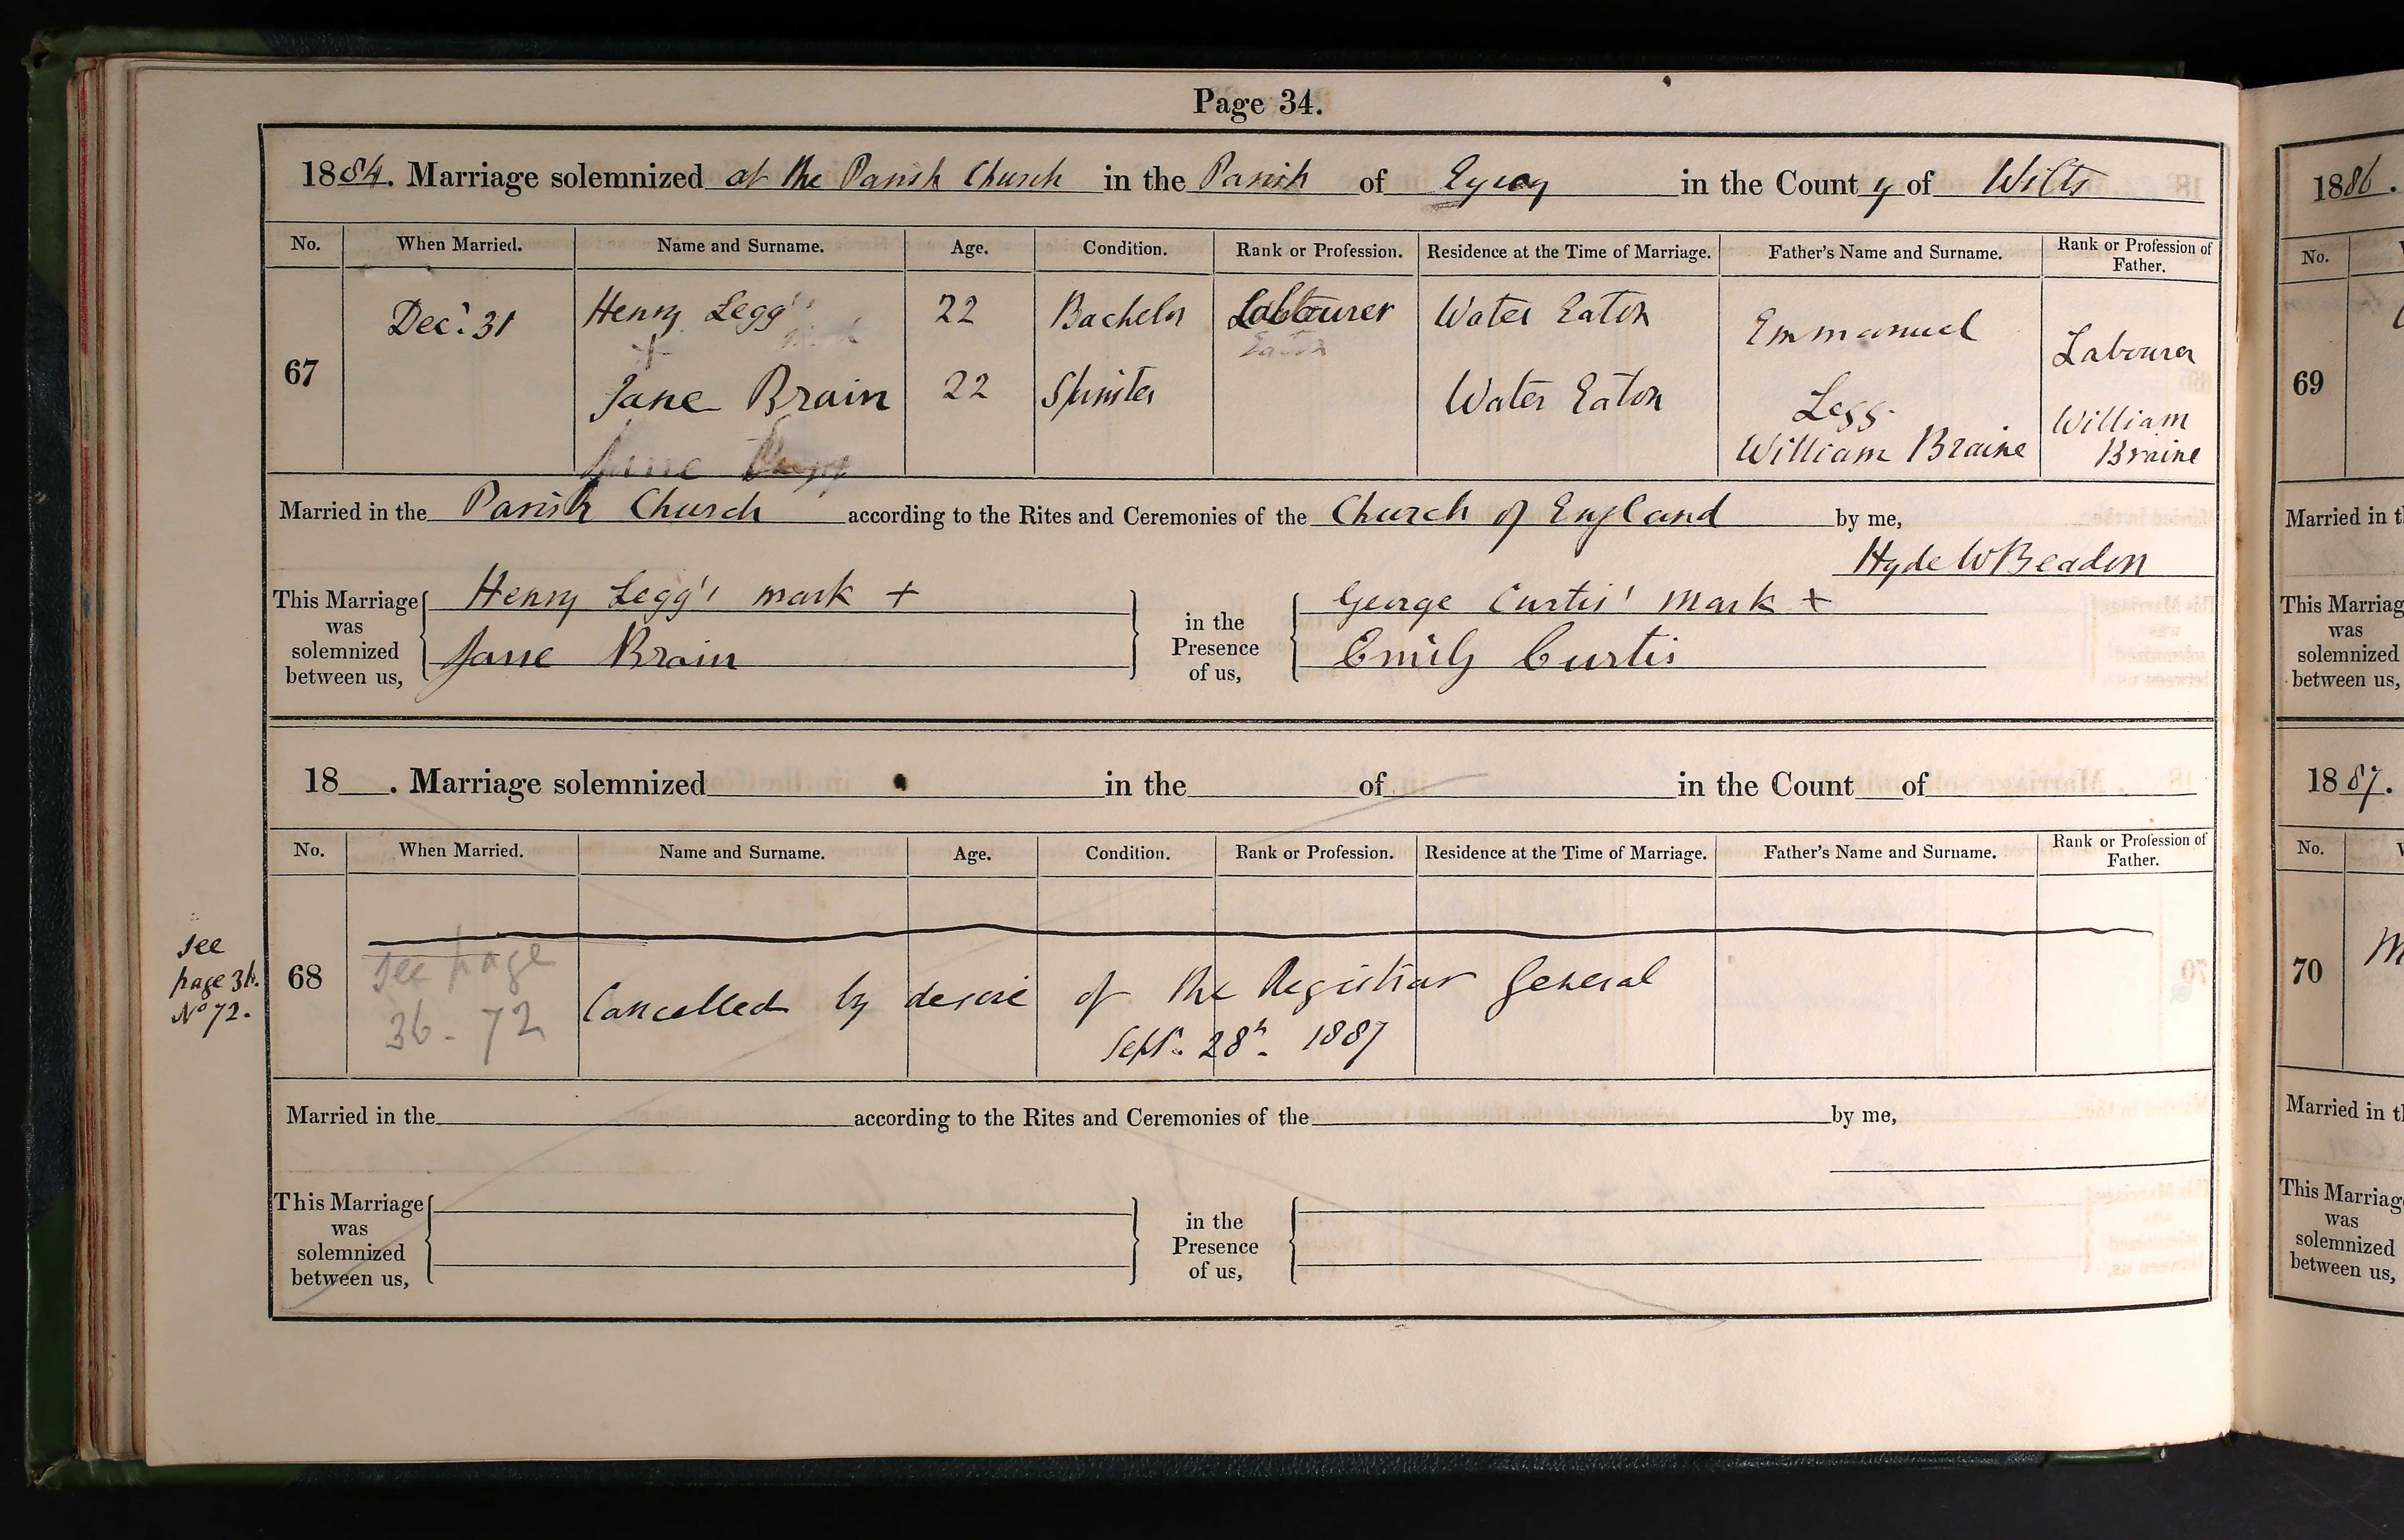 Page 34.
1884. Marriage solemnized at the Parish Church in the Parish of Eysey in the County of Wilts
No. When Married. Name and Surname. Age. Condition. Rank or Profession. Residence at the Time of Marriage. Father's Name and Surname. Rank or Profession of Father.
67 Dec: 31 Henry Legg 22 Bachelor Labourer Water Eaton Emmanuel Legg Labourer
Jane Brain 22 Spinster Water Eaton William Braine William Braine
Married in the Parish Church according to the Rites and Ceremonies of the Church of England by me,
Hyde W Beadon
This Marriage was solemnized between us, Henry Legg's mark + in the Presence of us, George Curtis' mark +
Jane Brain Emily Curtis
18 . Marriage solemnized in the of in the Count of
No. When Married. Name and Surname. Age. Condition. Rank or Profession. Residence at the Time of Marriage. Father's Name and Surname. Rank or Profession of Father.
see
page 36.
No 72.
68
see page
36 - 72
Cancelled by desire of the Registrar General
Sept. 28th. 1887
Married in the according to the Rites and Ceremonies of the by me,
This Marriage was solemnized between us, in the Presence of us,
1886.
No.
69
Married in t
This Marriag
was
solemnized
between us,
1887.
No.
70 M
Married in t
This Marriag
was
solemnized
between us,